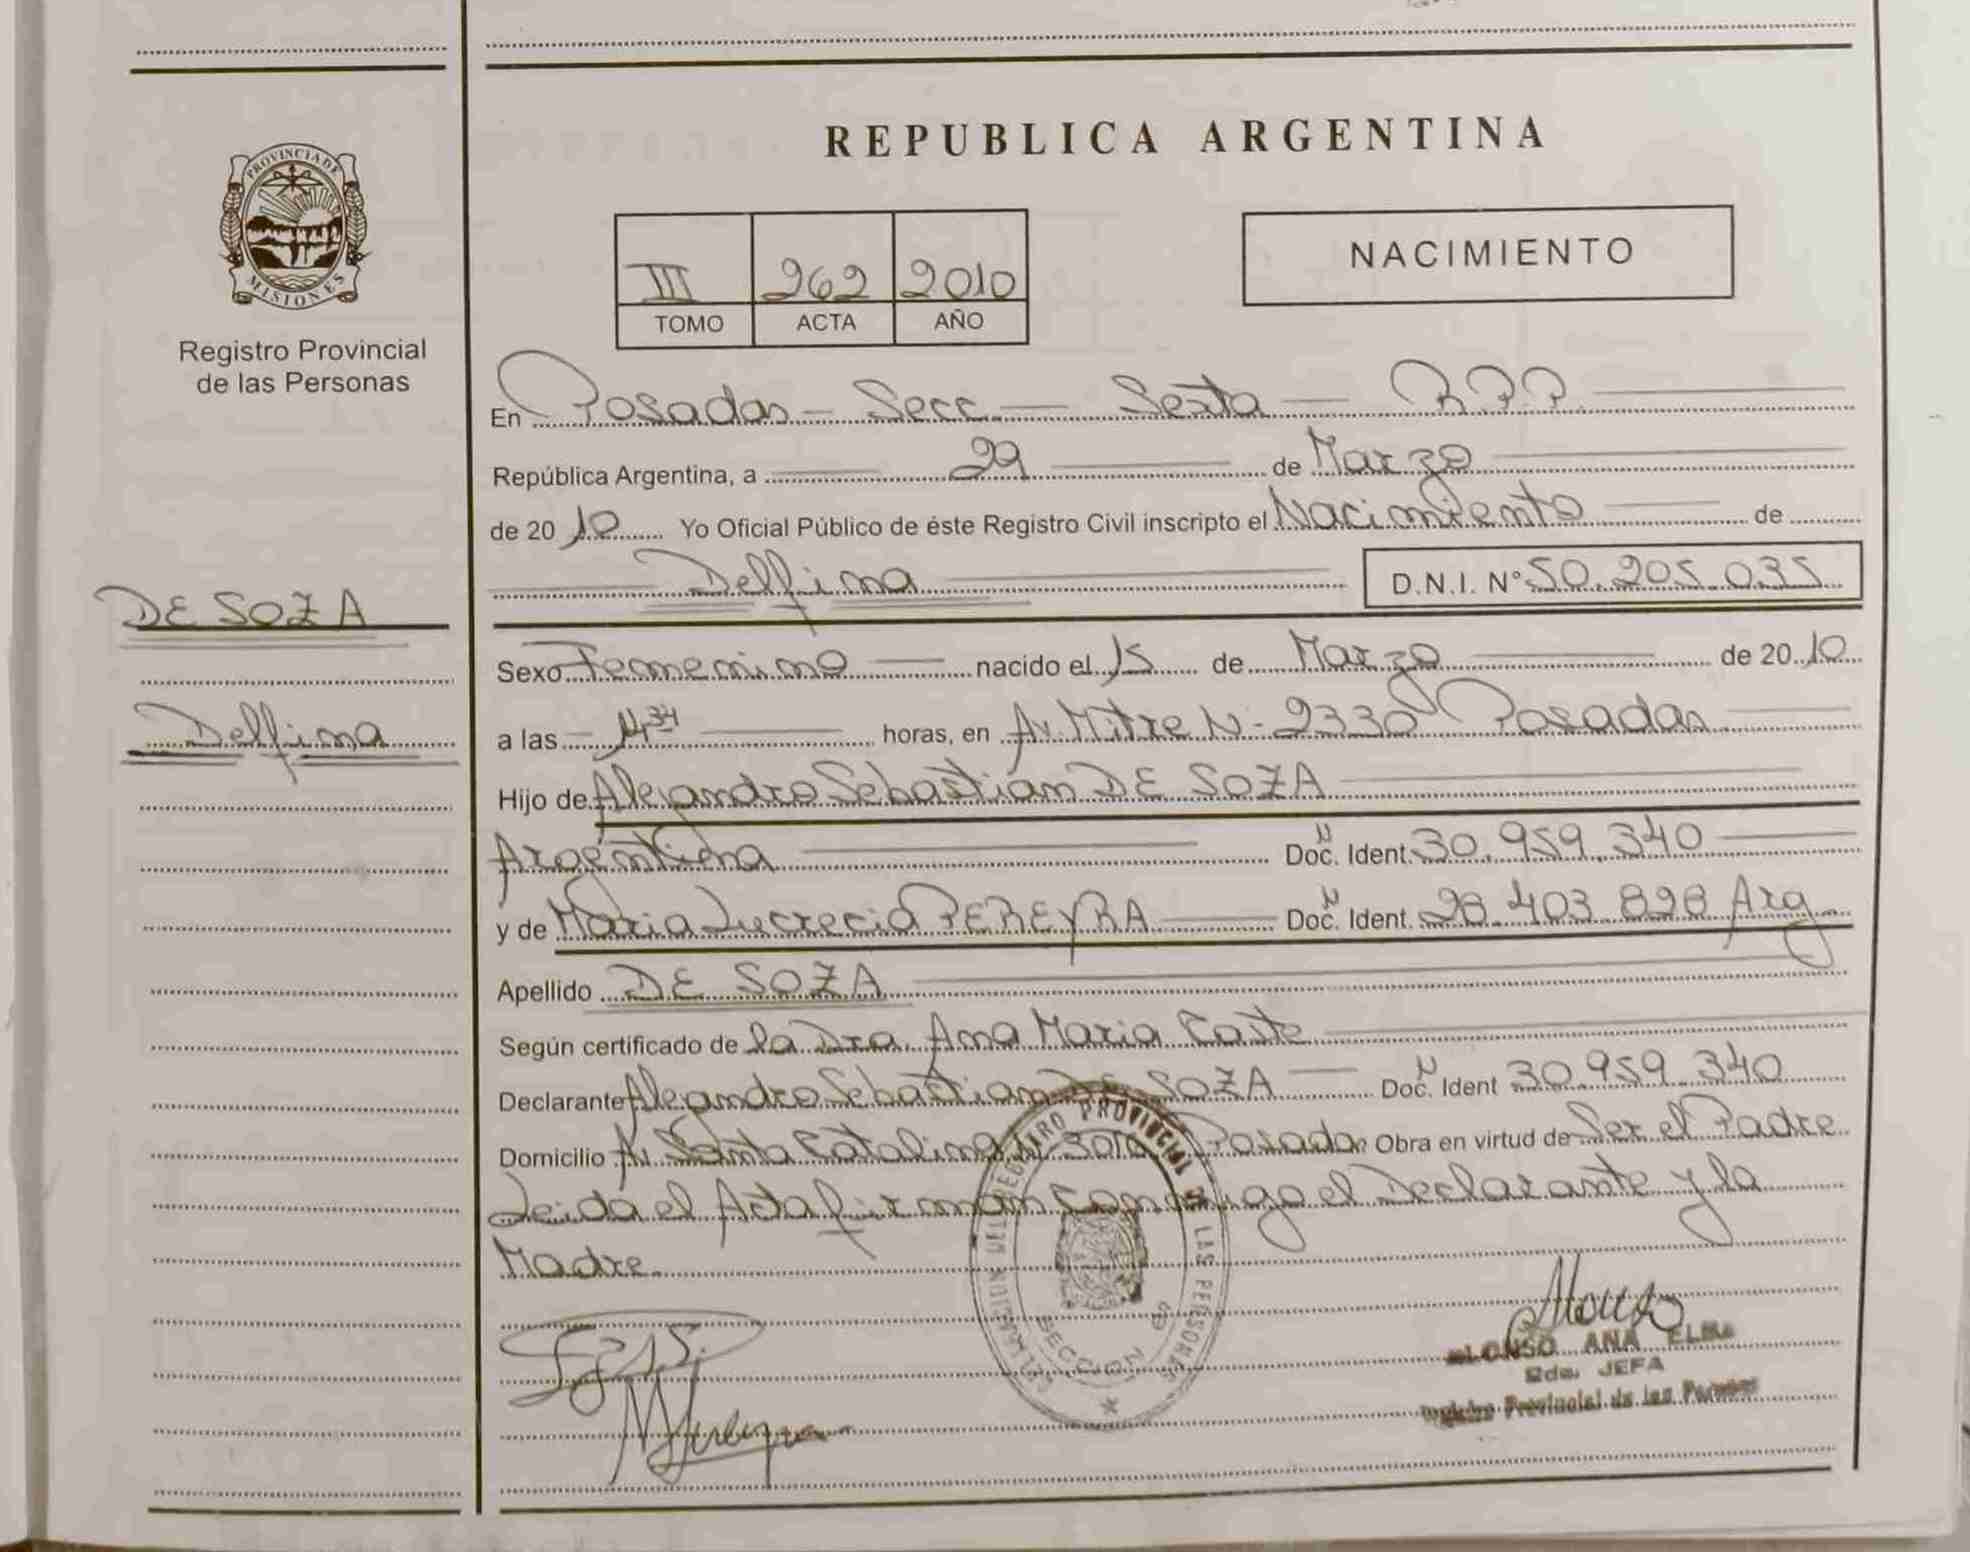 PROVINCIA DE
MISIONES
Registro Provincial
de las Personas
DE SOZA
Delfina
REPUBLICA ARGENTINA
III 262 2010
TOMO ACTA AÑO
NACIMIENTO
En Posadas - Secc. - Sexta - R.P.P.
República Argentina, a 29 de Marzo
de 2010 Yo Oficial Público de éste Registro Civil inscripto el Nacimiento de
Delfina D.N.I. N° 50.205.035
Sexo Femenino nacido el 15 de Marzo de 2010
a las horas, en Av. Mitre N- 2330 Posadas
Hijo de Alejandro Sebastian DE SOZA
Argentina Doc. Ident. 30.959.340
y de Maria Lucrecia PEREYRA Doc. Ident. 28.403.898 Arg
Apellido DE SOZA
Según certificado de la Dra. Ana Maria Coste
Declarante Alejandro Sebastian DE SOZA Doc. Ident 30.959.340
Domicilio Av. Santa Catalina N 3010 Posadas Obra en virtud de Ser el Padre
Leida el Acta firman Conmigo el Declarante y la
Madre.
REGISTRO PROVINCIAL DE LAS PERSONAS
SECCION 6
ALONSO ANA ELMA
JEFA
Registro Provincial de las Personas